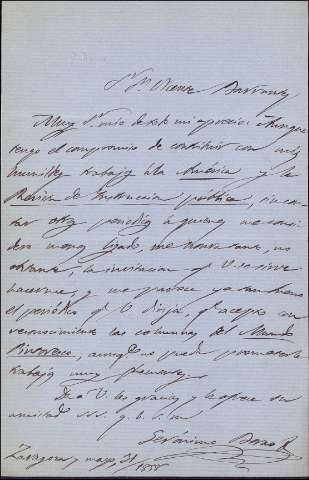 Sr. Dn. Vicente Barrantes
Muy Sr. mio de todo mi aprecio: Aunque
tengo el compromiso de contribuir con mis
humildes trabajos á la América y la
Revista de Instruccion pública, sin con-
tar otros periódicos
me honra tanto, no
obstante, la invitacion qe. V. se sirve
hacerme, y me parece ya tan bueno
el periódico qe. V. dirije, qe. acepto con
reconocimiento las columnas del Mundo
Pintoresco, aunqe. no puedo prometerle
trabajos muy
Doi a V. las gracias y le ofrece su
amistad S. S. q. b. s. m.
Gerónimo Borao
Zaragoza y mayo, 31
1858